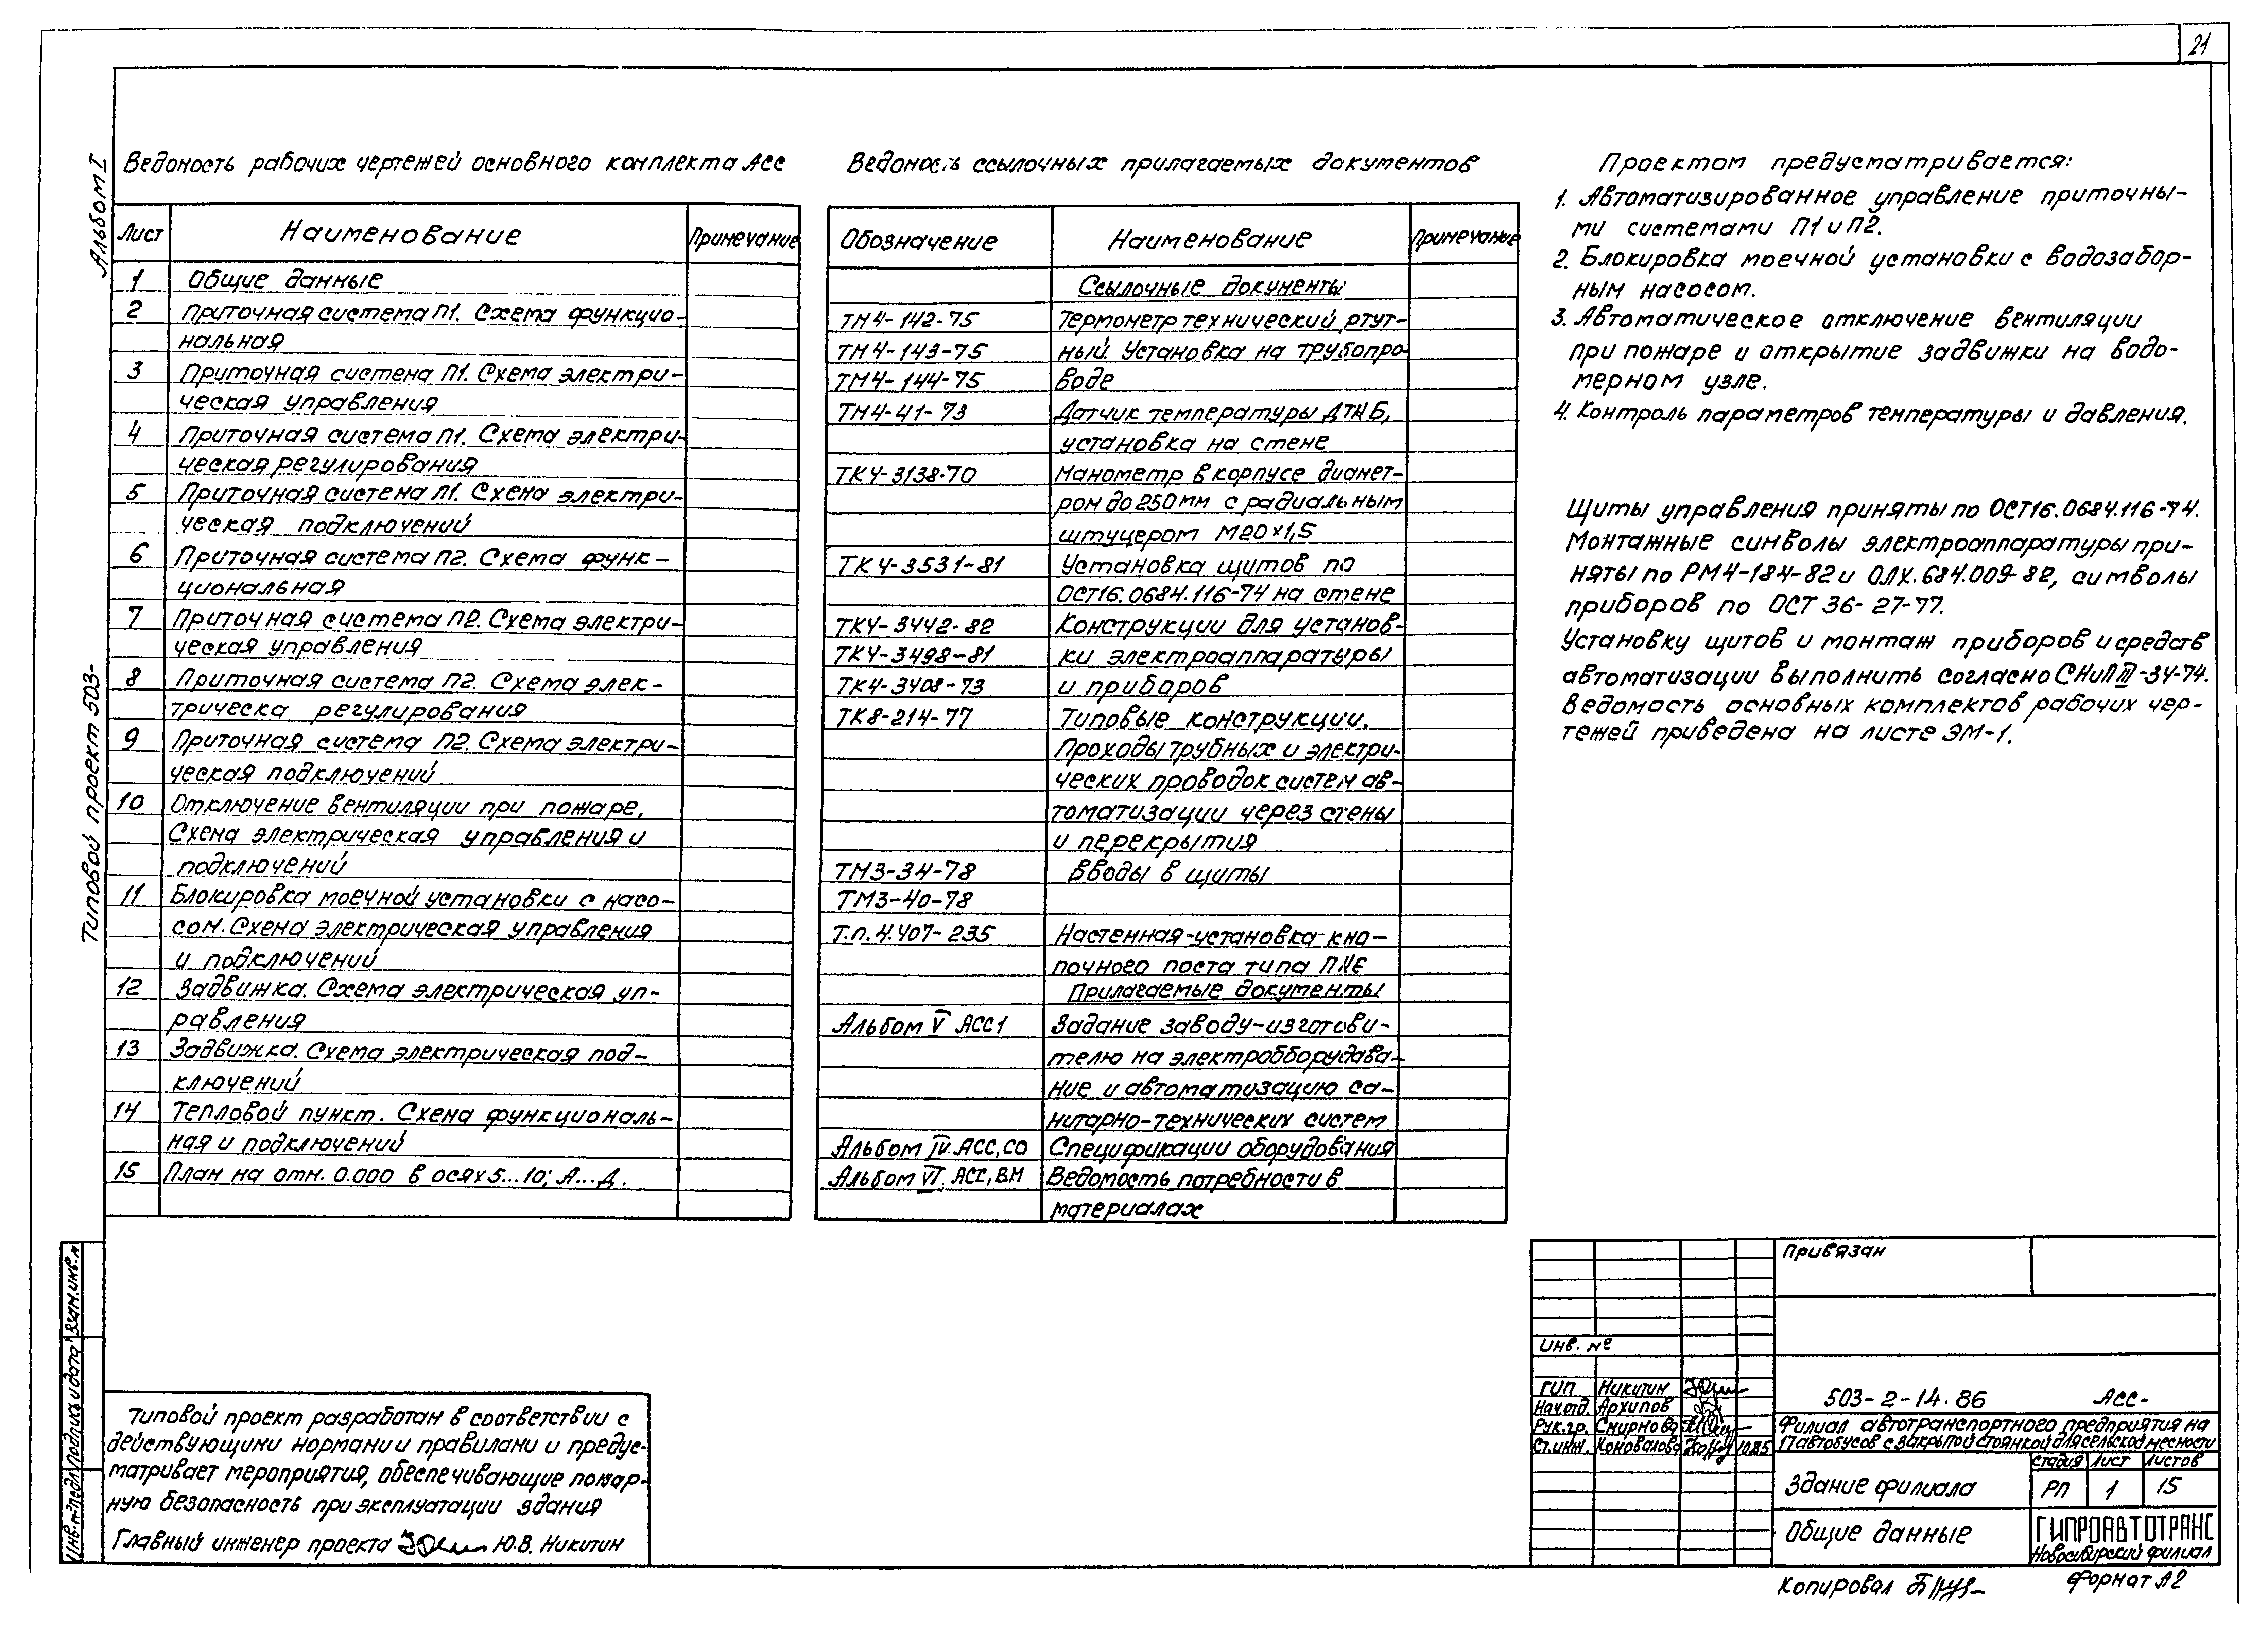 21
Альбом I
Типовой проект 503-
Ведомость рабочих чертежей основного комплекта АСС
Лист Наименование Примечание
1 Общие данные
2 Приточная система П1. Схема функцио-
нальная
3 Приточная система П1. Схема электри-
ческая управления
4 Приточная система П1. Схема электри-
ческая регулирования
5 Приточная система П1. Схема электри-
ческая подключений
6 Приточная система П2. Схема функ-
циональная
7 Приточная система П2. Схема электри-
ческая управления
8 Приточная система П2. Схема элек-
трическа регулирования
9 Приточная система П2. Схема электри-
ческая подключений
10 Отключение вентиляции при пожаре.
Схема электрическая управления и
подключений
11 Блокировка моечной установки с насо-
сом. Схема электрическая управления
и подключений
12 Задвижка. Схема электрическая уп-
равления
13 Задвижка. Схема электрическая под-
ключений
14 Тепловой пункт. Схема функциональ-
ная и подключений
15 План на отм. 0.000 в осях 5...10; А...Д.
Ведомость ссылочных прилагаемых документов
Обозначение Наименование Примечание
Ссылочные документы
ТМ4-142-75 Термометр технический ртут-
ТМ4-143-75 ный. Установка на трубопро-
ТМ4-144-75 воде
ТМ4-41-73 Датчик температуры ДТКБ,
установка на стене
ТК4-3138-70 Манометр в корпусе диамет-
ром до 250мм с радиальным
штуцером М20×1,5
ТК4-3531-81 Установка щитов по
ОСТ16.0684.116-74 на стене
ТК4-3442-82 Конструкции для установ-
ТК4-3498-81 ки электроаппаратуры
ТК4-3408-73 и приборов
ТК8-214-77 Типовые конструкции.
Проходы трубных и электри-
ческих проводок систем ав-
томатизации через стены
и перекрытия
ТМ3-34-78 Вводы в щиты
ТМ3-40-78
Т.п.4.407-235 Настенная установка кно-
почного поста типа ПКЕ
Прилагаемые документы
Альбом V АСС1 Задание заводу-изготови-
телю на электрооборудова-
ние и автоматизацию са-
нитарно-технических систем
Альбом IV. АСС,СО Спецификации оборудования
Альбом VI. АСС,ВМ Ведомость потребности в
материалах
Проектом предусматривается:
1. Автоматизированное управление приточны-
ми системами П1 и П2.
2. Блокировка моечной установки с водозабор-
ным насосом.
3. Автоматическое отключение вентиляции
при пожаре и открытие задвижки на водо-
мерном узле.
4. Контроль параметров температуры и давления.
Щиты управления приняты по ОСТ16.0684.116-74.
Монтажные символы электроаппаратуры при-
няты по РМ4-184-82 и ОЛХ.684.009-82, символы
приборов по ОСТ 36-27-77.
Установку щитов и монтаж приборов и средств
автоматизации выполнить согласно СНиП III-34-74.
Ведомость основных комплектов рабочих чер-
тежей приведена на листе ЭМ-1.
Взам.инв.№
Подпись и дата
Инв.№подл.
Типовой проект разработан в соответствии с
действующими нормами и правилами и предус-
матривает мероприятия, обеспечивающие пожар-
ную безопасность при эксплуатации здания
Главный инженер проекта Ю.В. Никитин
Привязан
Инв. №
ГИП Никитин
Нач.отд. Архипов
Рук.гр. Смирнова
Ст.инж. Коновалова 10.85
503-2-14.86 АСС-
Филиал автотранспортного предприятия на
17 автобусов с закрытой стоянкой для сельской местности
Здание филиала
Стадия Лист Листов
РП 1 15
Общие данные
ГИПРОАВТОТРАНС
Новосибирский филиал
Копировал
Формат А2